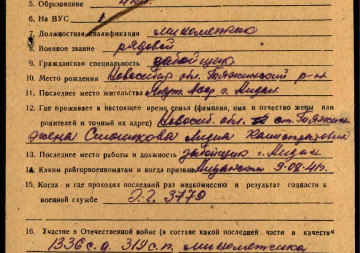 5. Образование 4 кл.
6. На ВУС 1
7. Должностная квалификация минометчик
8. Военное звание рядовой
9. Гражданская специальность забойщик
10. Место рождения Новосибир. обл. Тяжинский р-н
11. Последнее место жительства г.
12. Где проживает в настоящее время семья (фамилия, имя и отчество жены или
родителей и точный их адрес) Новосиб. обл. ст. Тяжин
жена
13. Последнее место работы и должность забойщик г.
14. Каким райгорвоенкоматом и когда призван 9-08.41г.
15. Когда и где проходил последний раз медкомиссию и результат годности к
военной службе 3779
16. Участие в Отечественной войне (в составе какой последней части в качестве
1336 с.д. 319 с.п. минометчика